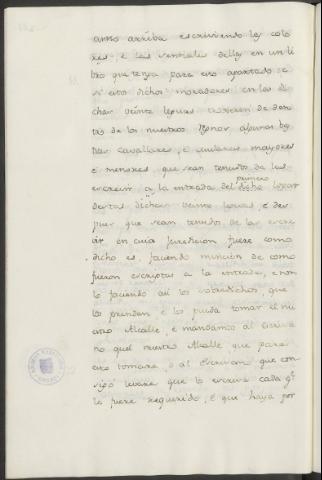 antes arriba escriviendo los colo
res, e las señales dellos en un li
bro que tenga para eso apartado: e
si estos dichos moradores en las di
chas veinte leguas traxieren de den
tro de los nuestros Regnos algunas bes
tias cavallares, e mulares mayores
e menores, que sean tenudos de las
escrevir a la entrada del dicho primero lugar
destas dichas veinte leguas, e des
pues que sean tenudos de las escre
vir en cuia juredicion fuere como
dicho es, faciendo mincion de como
fueron escryptas a la entrada, e non
lo faciendo asi los sobredichos que
lo pierdan, e lo pueda tomar el nu
estro Alcalle, e mandamos al escriva
no quel nuestro Alcalle que para
esto tomare, o al Escrivan que con
sigo levare que lo escriva cada qe.
le fuere requerido, e que haya por